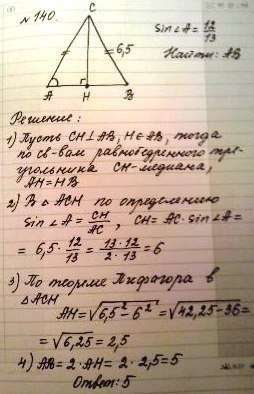 № 140.
C
sin∠A = 12/13
6,5
Найти: AB
A H B
Решение:
1) Пусть CH⊥AB, H∈AB, тогда
по св-вам равнобедренного тре-
угольника CH-медиана,
AH=HB
2) В △ACH по определению
sin∠A = CH/AC, CH= AC·sin∠A=
= 6,5·12/13 = 13·12/2·13 = 6
3) По теореме Пифагора в
△ACH
AH=√6,5²-6² = √42,25-36 =
=√6,25 = 2,5
4) AB=2·AH=2·2,5=5
Ответ: 5